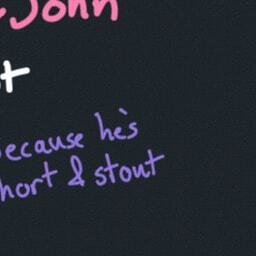 John
because he's
short & stout